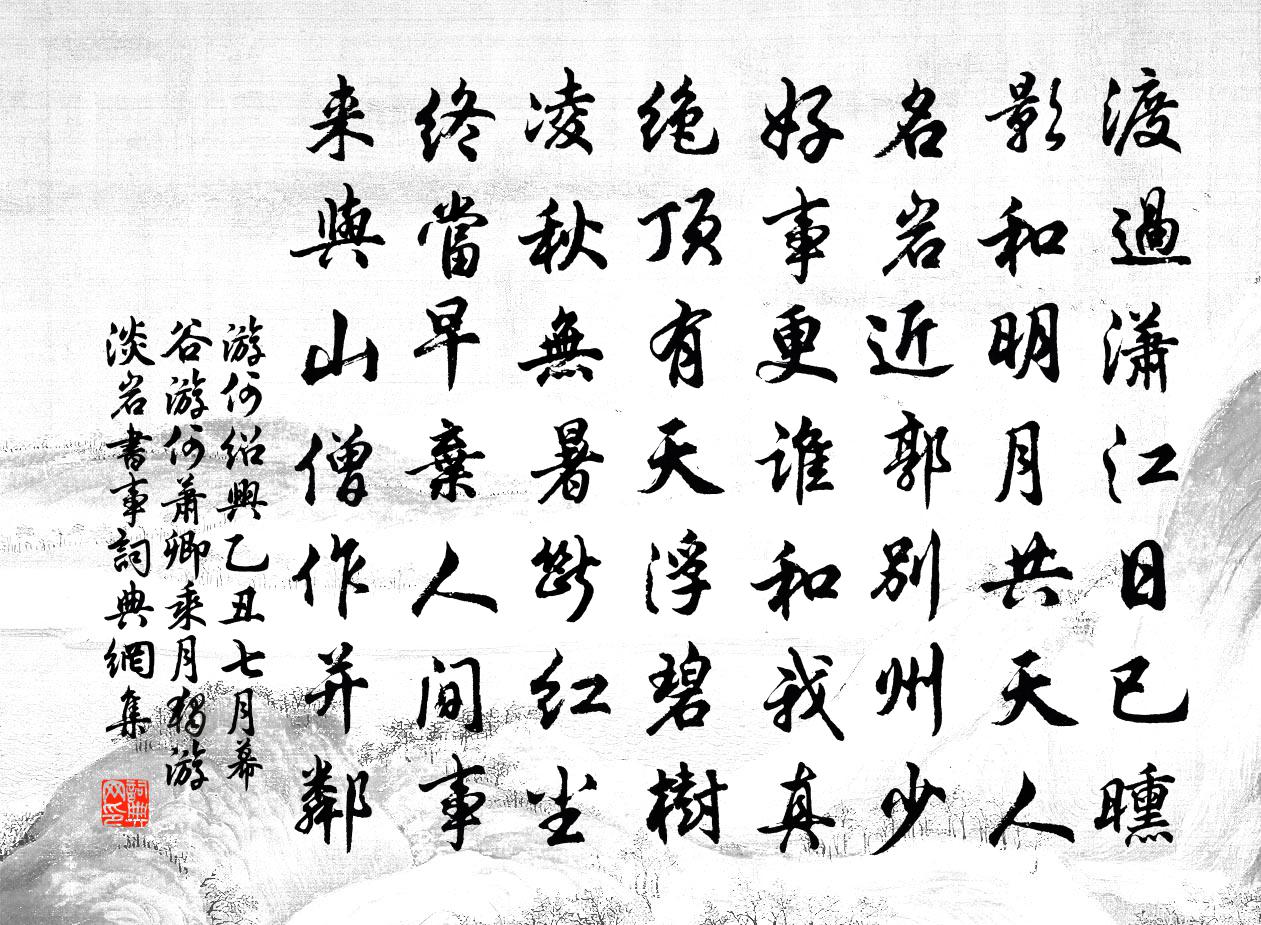 渡過瀟江日已曛
影和明月共天人
名岩近郭別州少
好事更誰和我真
绝頂有天浮碧樹
凌秋無暑断紅尘
终當早棄人間事
来與山僧作并鄰
游何紹興乙丑七月幕
谷游何萧卿乘月獨游
淡岩書事詞典網集
詞典网印